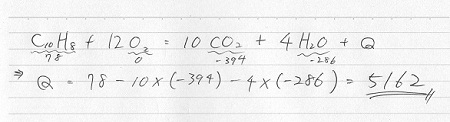 C₁₀H₈ + 12O₂ = 10CO₂ + 4H₂O + Q
78 0 -394 -286
⇒ Q = 78 - 10×(-394) - 4×(-286) = 5162